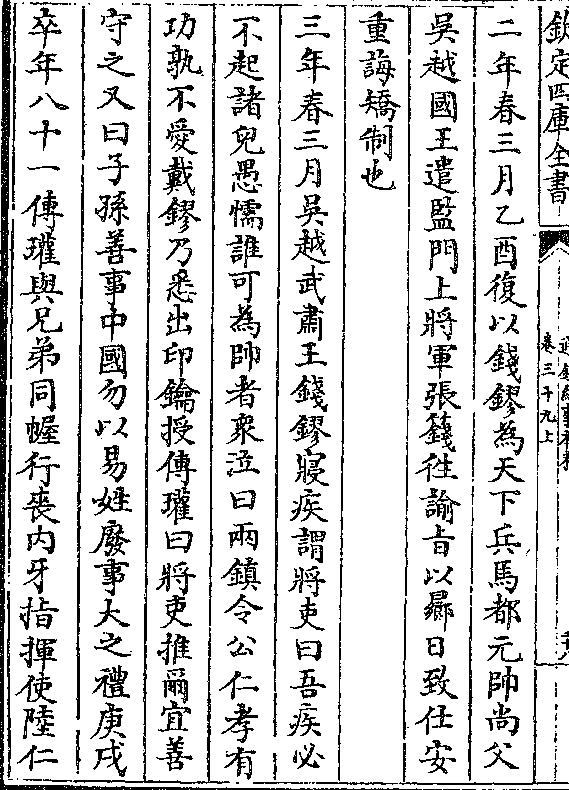 欽定四庫全書
卷三十九上
二年春三月乙酉復以錢鏐為天下兵馬都元帥尚父
吳越國王遣監門上將軍張籛往諭旨以曏日致仕安
重誨矯制也
三年春三月吳越武肅王錢鏐寢疾謂將吏曰吾疾必
不起諸兒愚懦誰可為帥者衆泣曰兩鎮令公仁孝有
功孰不愛戴鏐乃悉出印鑰授傳瓘曰將吏推爾宜善
守之又曰子孫善事中國勿以易姓廢事大之禮庚戌
卒年八十一傳瓘與兄弟同幄行喪内牙指揮使陸仁